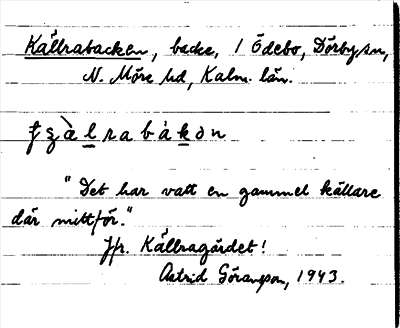 Källrabacken, backe, 1 Ödebo, Dörby sn,
N. Möre hd, Kalm. län.
"Det har vatt en gammel källare
där mittför."
Jfr. Källragärdet!
Astrid Göransson, 1943.